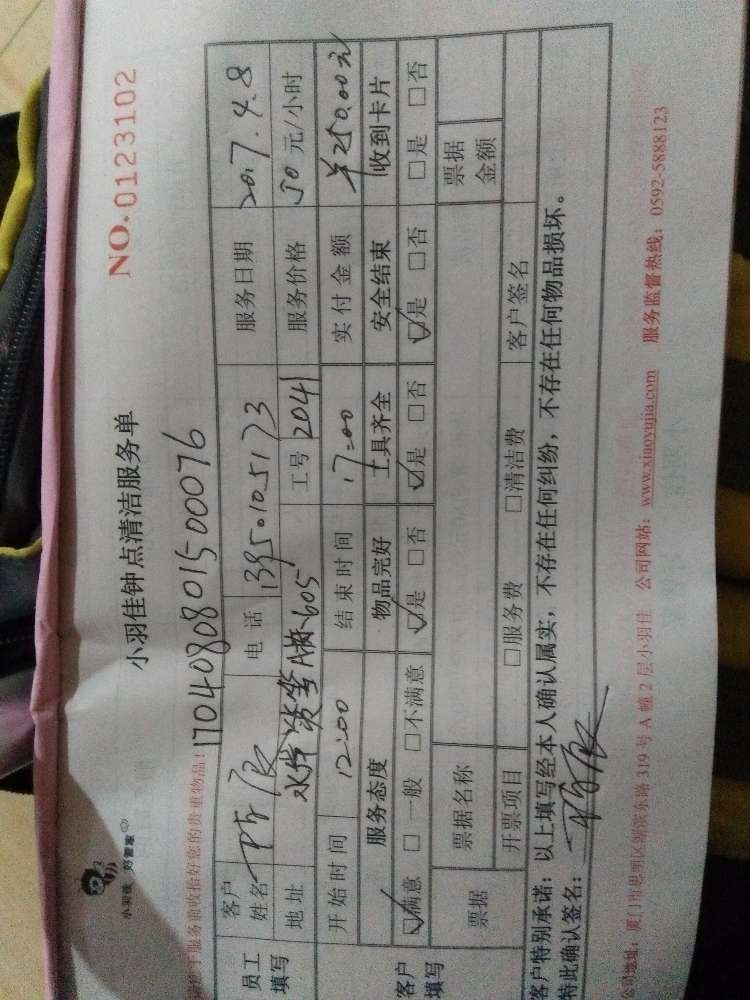 小羽佳 好管家
NO.0123102
小羽佳钟点清洁服务单
于服务前收拾好您的贵重物品!
1704080801500076
员工填写
客户姓名 电话 13950105173 服务日期 2017.4.8
地址 A梯605 工号 2041 服务价格 50 元/小时
开始时间 12:00 结束时间 17:00 实付金额 ¥250.00元
客户填写
服务态度 物品完好 工具齐全 安全结束 收到卡片
☑满意 □一般 □不满意 ☑是 □否 ☑是 □否 ☑是 □否 □是 □否
票据 票据名称 票据金额
开票项目 □服务费 □清洁费 客户签名
客户特别承诺:以上填写经本人确认属实,不存在任何纠纷,不存在任何物品损坏。
特此确认签名:
公司地址:厦门市思明区湖滨东路319号A幢2层小羽佳 公司网站:www.xiaoyujia.com 服务监督热线:0592-5888123